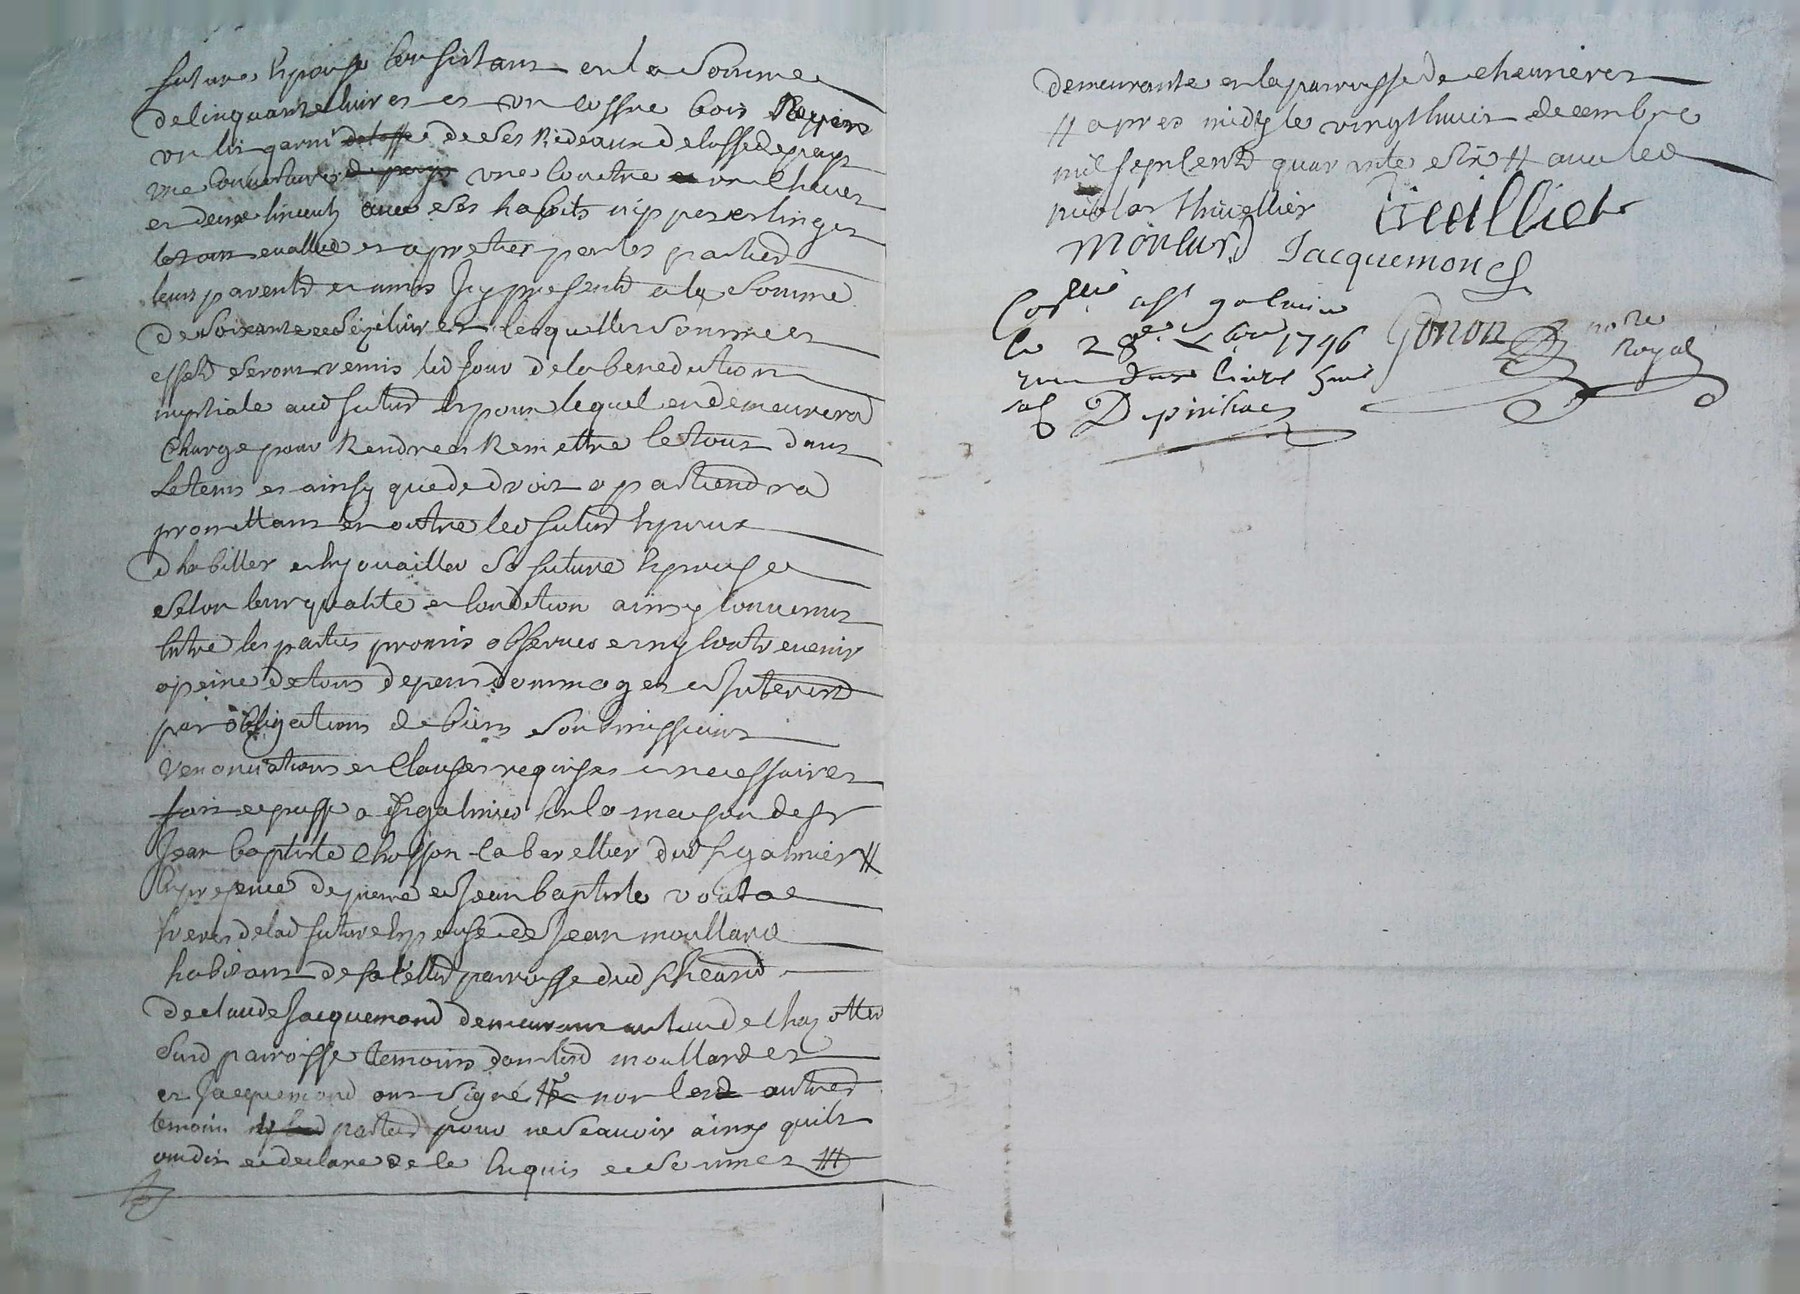 future Epouse Consistant en la somme
de Cinquante livres et un Coffre bois sapin
un lit garni de ses Rideaux detoffe de pays
une Couverture une Coultre un Chevet
et deux linceuls avec ses habits nippes et linges
le tout evallué et apretié par les parties
leurs parents et amis Icy presents a la somme
de soixante et livres lesquelles sommes
effets seront remis led jour de la benediction
nuptiale aud futur Epoux lequel en demeurera
Chargé pour Rendre et Remettre le tout dans
le tems et ainsy que de droit apartiendra
promettant en outre led futur Epoux
d habiller et Enjouailler sa future Epouse
selon leur qualité et Condition ainsy Convenus
Entre les parties promis observer et ny Contrevenir
a peine de tous depens dommages et Interests
par obligations de biens soumissions
renonciations et Clauses requises et necessaires
fait et passé a St galmier En la maison de sr
Jean baptiste Chosson Cabarettier dud St galmier #
En presence de pierre et Jean baptiste
freres de lad future Epouse de Jean moullard
habitant de parroisse dud
de Claude Jacquemond demeurant au lieu de
susd parroisse temoins dont lesd moullard et
et Jacquemond ont signé non lesd autres
temoins parties pour ne scavoir ainsy quils
ont dit et declaré de ce Enquis et sommes #
demeurante en la parroisse de chevrieres
# apres midy le vingt huit decembre
mil sept cents quarante et six # avec led
nicolas thivellier tivillier
moulard Jacquemond
Collé a st galmier
le 28e Xbre 1746 Gonon nore
recu livres royal
sol Depinhac